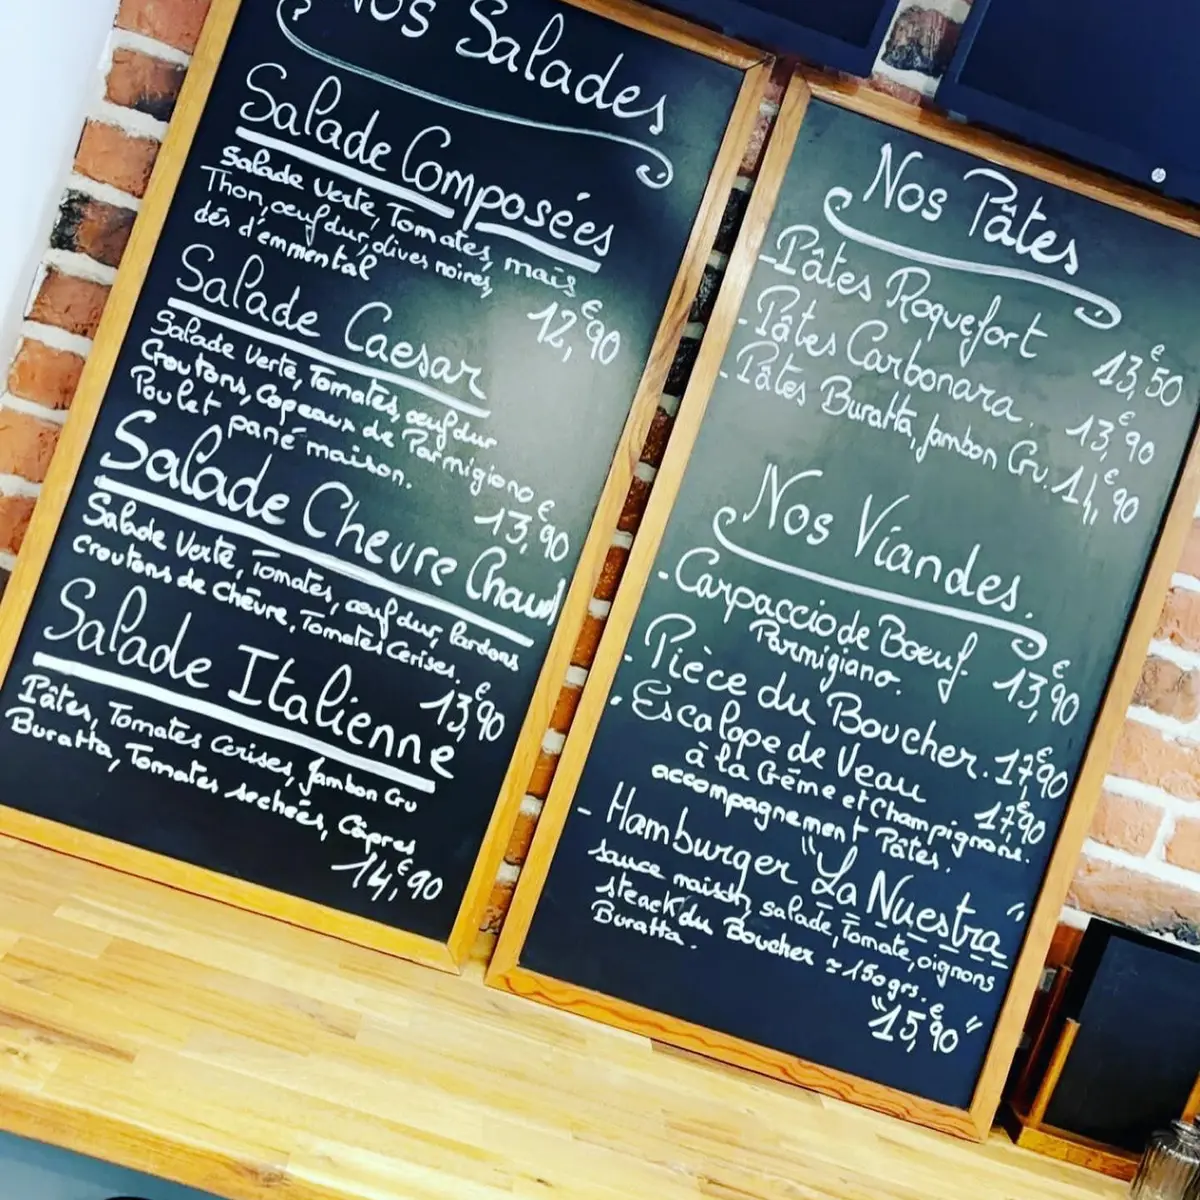 Nos Salades
Salade Composées
Salade Verte, Tomates, maïs
Thon, œuf dur, olives noires,
dés d'emmental
12,€90
Salade Caesar
Salade Verte, Tomates, œuf dur
Croutons, Copeaux de Parmigiano
Poulet pané maison.
13,€90
Salade Chevre Chaud
Salade Verte, Tomates, œuf dur, lardons
croutons de Chèvre, Tomates Cerises.
13,€90
Salade Italienne
Pâtes, Tomates Cerises, Jambon Cru
Buratta, Tomates sechées, Câpres
14,€90
Nos Pâtes
- Pâtes Roquefort 13,€50
- Pâtes Carbonara. 13,€90
- Pâtes Buratta, Jambon Cru. 14,€90
Nos Viandes.
- Carpaccio de Bœuf. 13,€90
Parmigiano.
- Pièce du Boucher. 17,€90
- Escalope de Veau 17,€90
à la Crême et Champignons.
accompagnement Pâtes.
- Hamburger "La Nuestra"
sauce maison, salade, Tomate, oignons
steack du Boucher ≃ 150grs.
Buratta.
"15,€90"